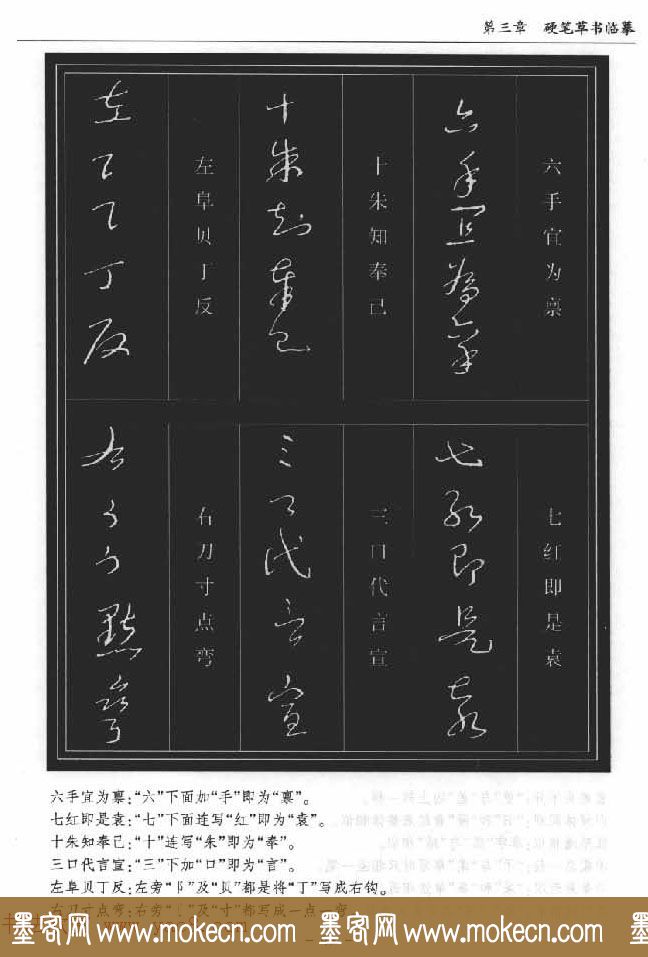 第三章 硬笔草书临摹
六手宜为禀
七红即是袁
十朱知奉己
三口代言宣
左阜贝丁反
右刀寸点弯
六手宜为禀:“六”下面加“手”即为“禀”。
七红即是袁:“七”下面连写“红”即为“袁”。
十朱知奉己:“十”连写“朱”即为“奉”。
三口代言宣:“三”下加“口”即为“言”。
左阜贝丁反:左旁“阝”及“贝”都是将“丁”写成右钩。
右刀寸点弯:右旁“刂”及“寸”都写成一点一弯。
墨客网 www.mokecn.com 墨客网 www.mokecn.com